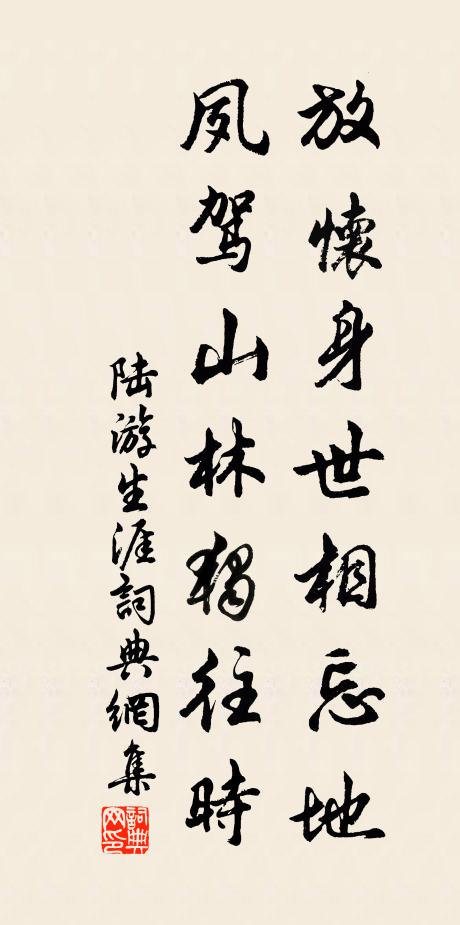 放懷身世相忘地
夙駕山林獨往時
陆游生涯詞典網集
詞典网印